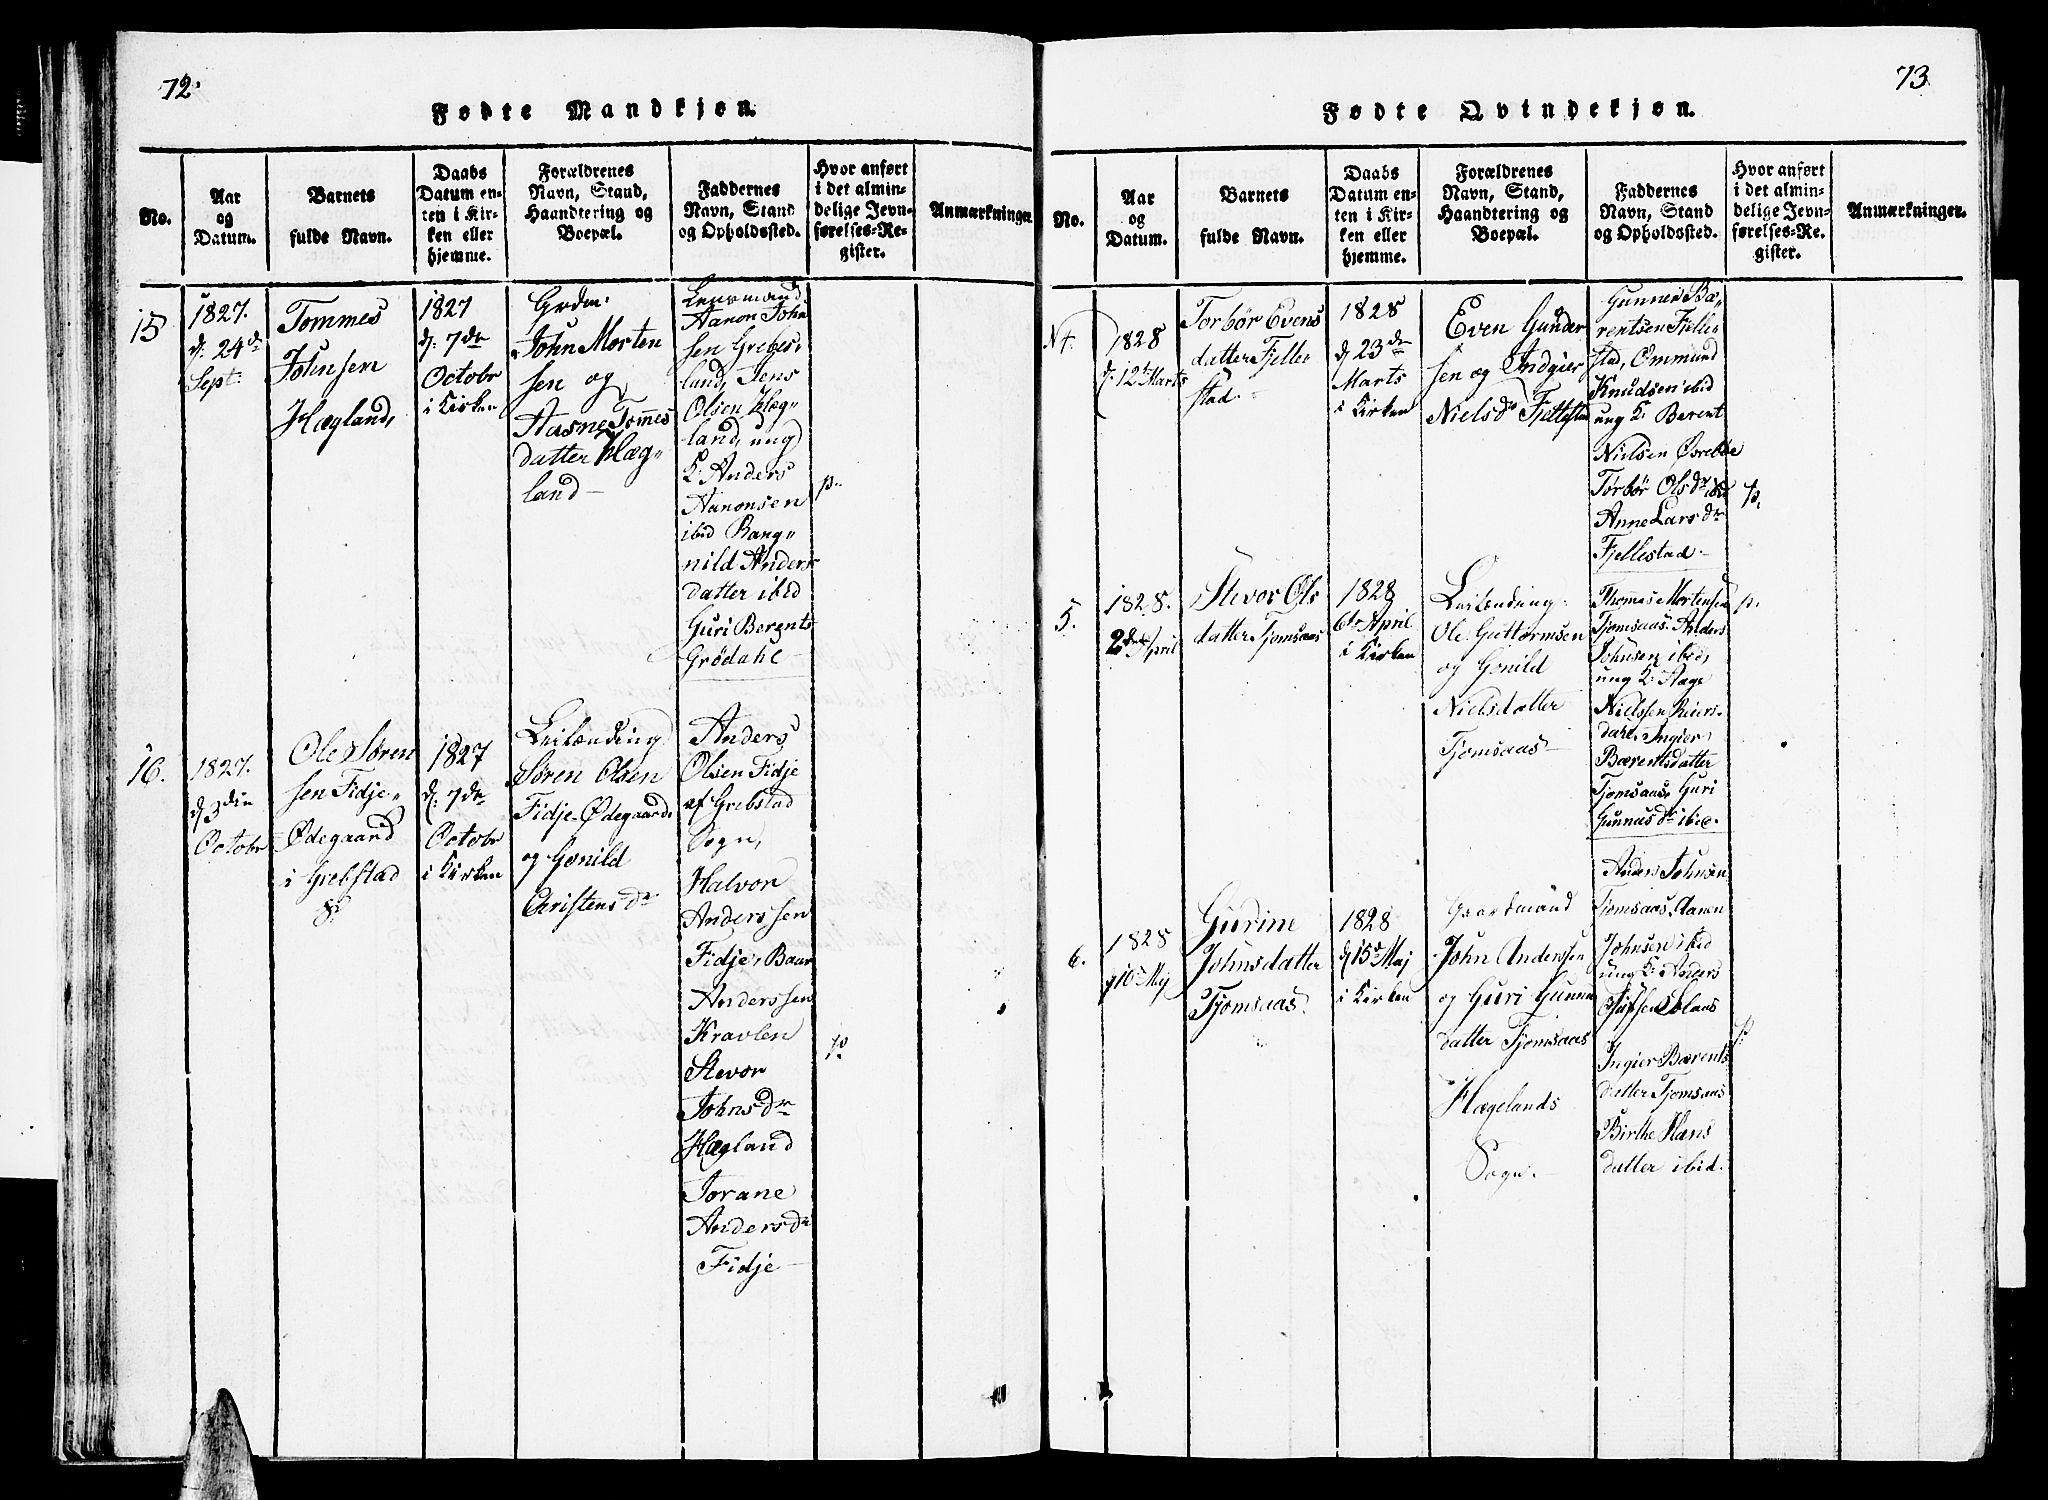 72.
Fødte Mandkjøn.
No.
Aar
og
Datum.
Barnets
fulde Navn.
Daabs
Datum en-
ten i Kir-
ken eller
hjemme.
Forældrenes
Navn, Stand,
Haandtering og
Boepæl.
Faddernes
Navn, Stand
og Opholdssted.
Hvor anført
i det almin-
delige Jevn-
førelses-Re-
gister.
Anmærkninger.
15
1827.
d: 24de
Sept:
Tommes
Johnsen
Hægland,
1827
d: 7de
Octobr
i Kirken
Grdm:
John Morten
sen og
Aasne Tommes
datter Hæg-
land
Lensmand
Aanon John
sen Grebes,
land, Jens
Olsen Hæg-
land, ung
K: Anders
Aanonsen
ibid Rang-
nild Anders
datter ibid
Guri Berents
Grødahl
p.
16.
1827.
d 3die
Octobr
Ole Søren
sen Fidje-
Ødegaard
i Grebstad
S:
1827
d: 7de
Octobr
i Kirken
Leilænding
Søren Olsen
Fidje-Ødegaard
og Gonild
Christensdr
Anders
Olsen Fidje
af Grebstad
Sogn,
Halvor
Anderssen
Fidje, Baar
Anderssen
Kravlen
Stevor
Johnsdr
Hægland
Torane
Andersdr
Fidje
p.
73
Fødte Qvindekjøn.
No.
Aar
og
Datum.
Barnets
fulde Navn.
Daabs
Datum en-
ten i Kir-
ken eller
hjemme.
Forældrenes
Navn, Stand,
Haandtering og
Boepæl.
Faddernes
Navn, Stand
og Opholdssted.
Hvor anført
i det almin-
delige Jevn-
førelses-Re-
gister.
Anmærkninger.
N4.
1828
d: 12te Marts
Torbør Evens
datter Fjelle
stad.
1828
d 23de
Marts
i Kirken
Even Gunder
sen og Indgier
Nielsdr Fjellestad
Gunner Bæ-
rentsen Fjelle-
stad, Ommund
Knudsen ibid
ung K: Berent
Nielsen Øvrebøe
Torbør Olsdr ibid
Anne Larsdr
Fjellestad
p.
5.
1828.
2den April
Stevor Ols
datter Tjomsaas
1828
6te April
i Kirken
Leilænding
Ole Guttormsen
og Gonild
Nielsdatter
Tjomsaas
Thommes Mortensen
Tjomsaas. Anders
Johnsen ibid,
ung K: Aage
Nielssen Reiers-
dahl, Ingier
Bærentsdatter
Tjomsaas, Guri
Gunnusdr ibid.
p.
6.
1828
d 10de Maj
Gurine
Johnsdatter
Tjomsaas.
1828
d 15de Maj
i Kirken
Gaardmand
John Anderssen
og Guri Gunnu
datter Tjomsaas
Hægelands
Sogn.
Anders Johnsen
Tjomsaas. Aanen
Johnsen ibid
ung K: Anders
Ingier Bærents
datter Tjomsaas
Birthe Hans
datter ibid.
p.